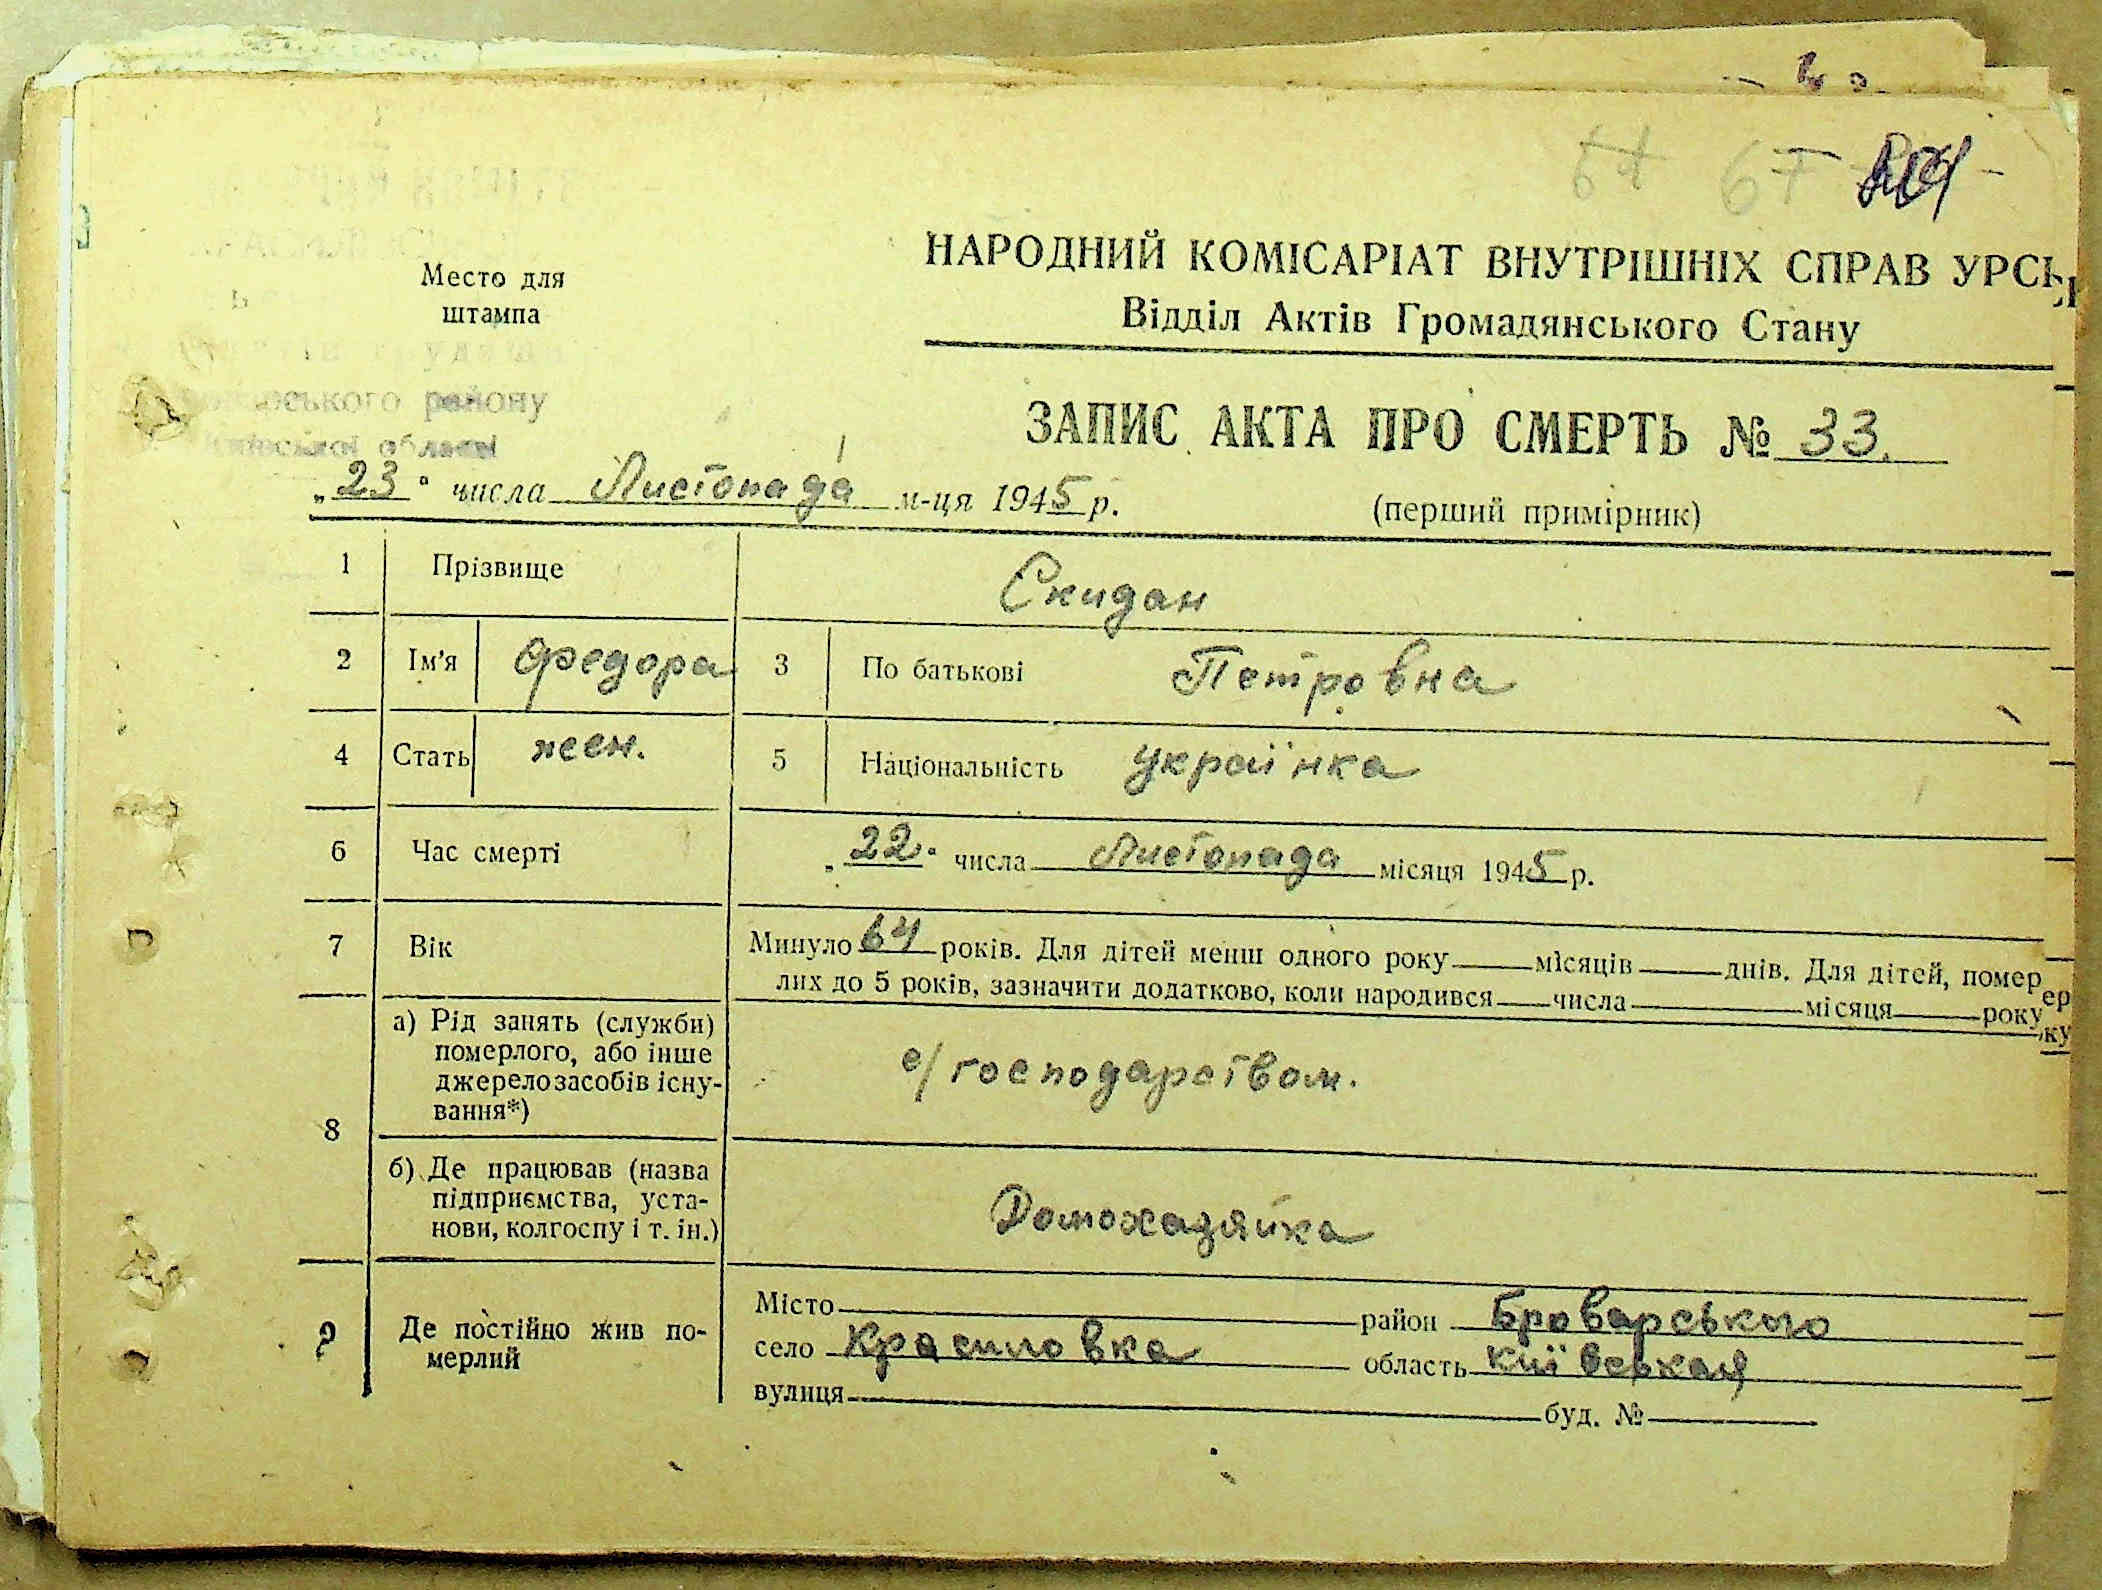 64 67
НАРОДНИЙ КОМІСАРІАТ ВНУТРІШНІХ СПРАВ УРСР
Відділ Актів Громадянського Стану
Место для
штампа
району
області
ЗАПИС АКТА ПРО СМЕРТЬ № 33.
„23" числа Листопада м-ця 1945 р.
(перший примірник)
1 Прізвище Скидан
2 Ім'я Федора 3 По батькові Петровна
4 Стать жен. 5 Національність українка
6 Час смерті „22" числа Листопада місяця 1945 р.
7 Вік Минуло 64 років. Для дітей менш одного року місяців днів. Для дітей, помер
лих до 5 років, зазначити додатково, коли народився числа місяця року
8 а) Рід занять (служби)
померлого, або інше
джерело засобів існу-
вання*)
с/господарством.
б) Де працював (назва
підприємства, уста-
нови, колгоспу і т. ін.)
Домохазяйка
9 Де постійно жив по-
мерлий
Місто район Броварського
село Красиловка область Київськая
вулиця буд. №